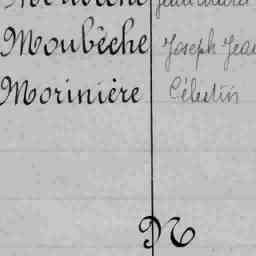 Moubêche Joseph Jean
Morinière Célestin
N